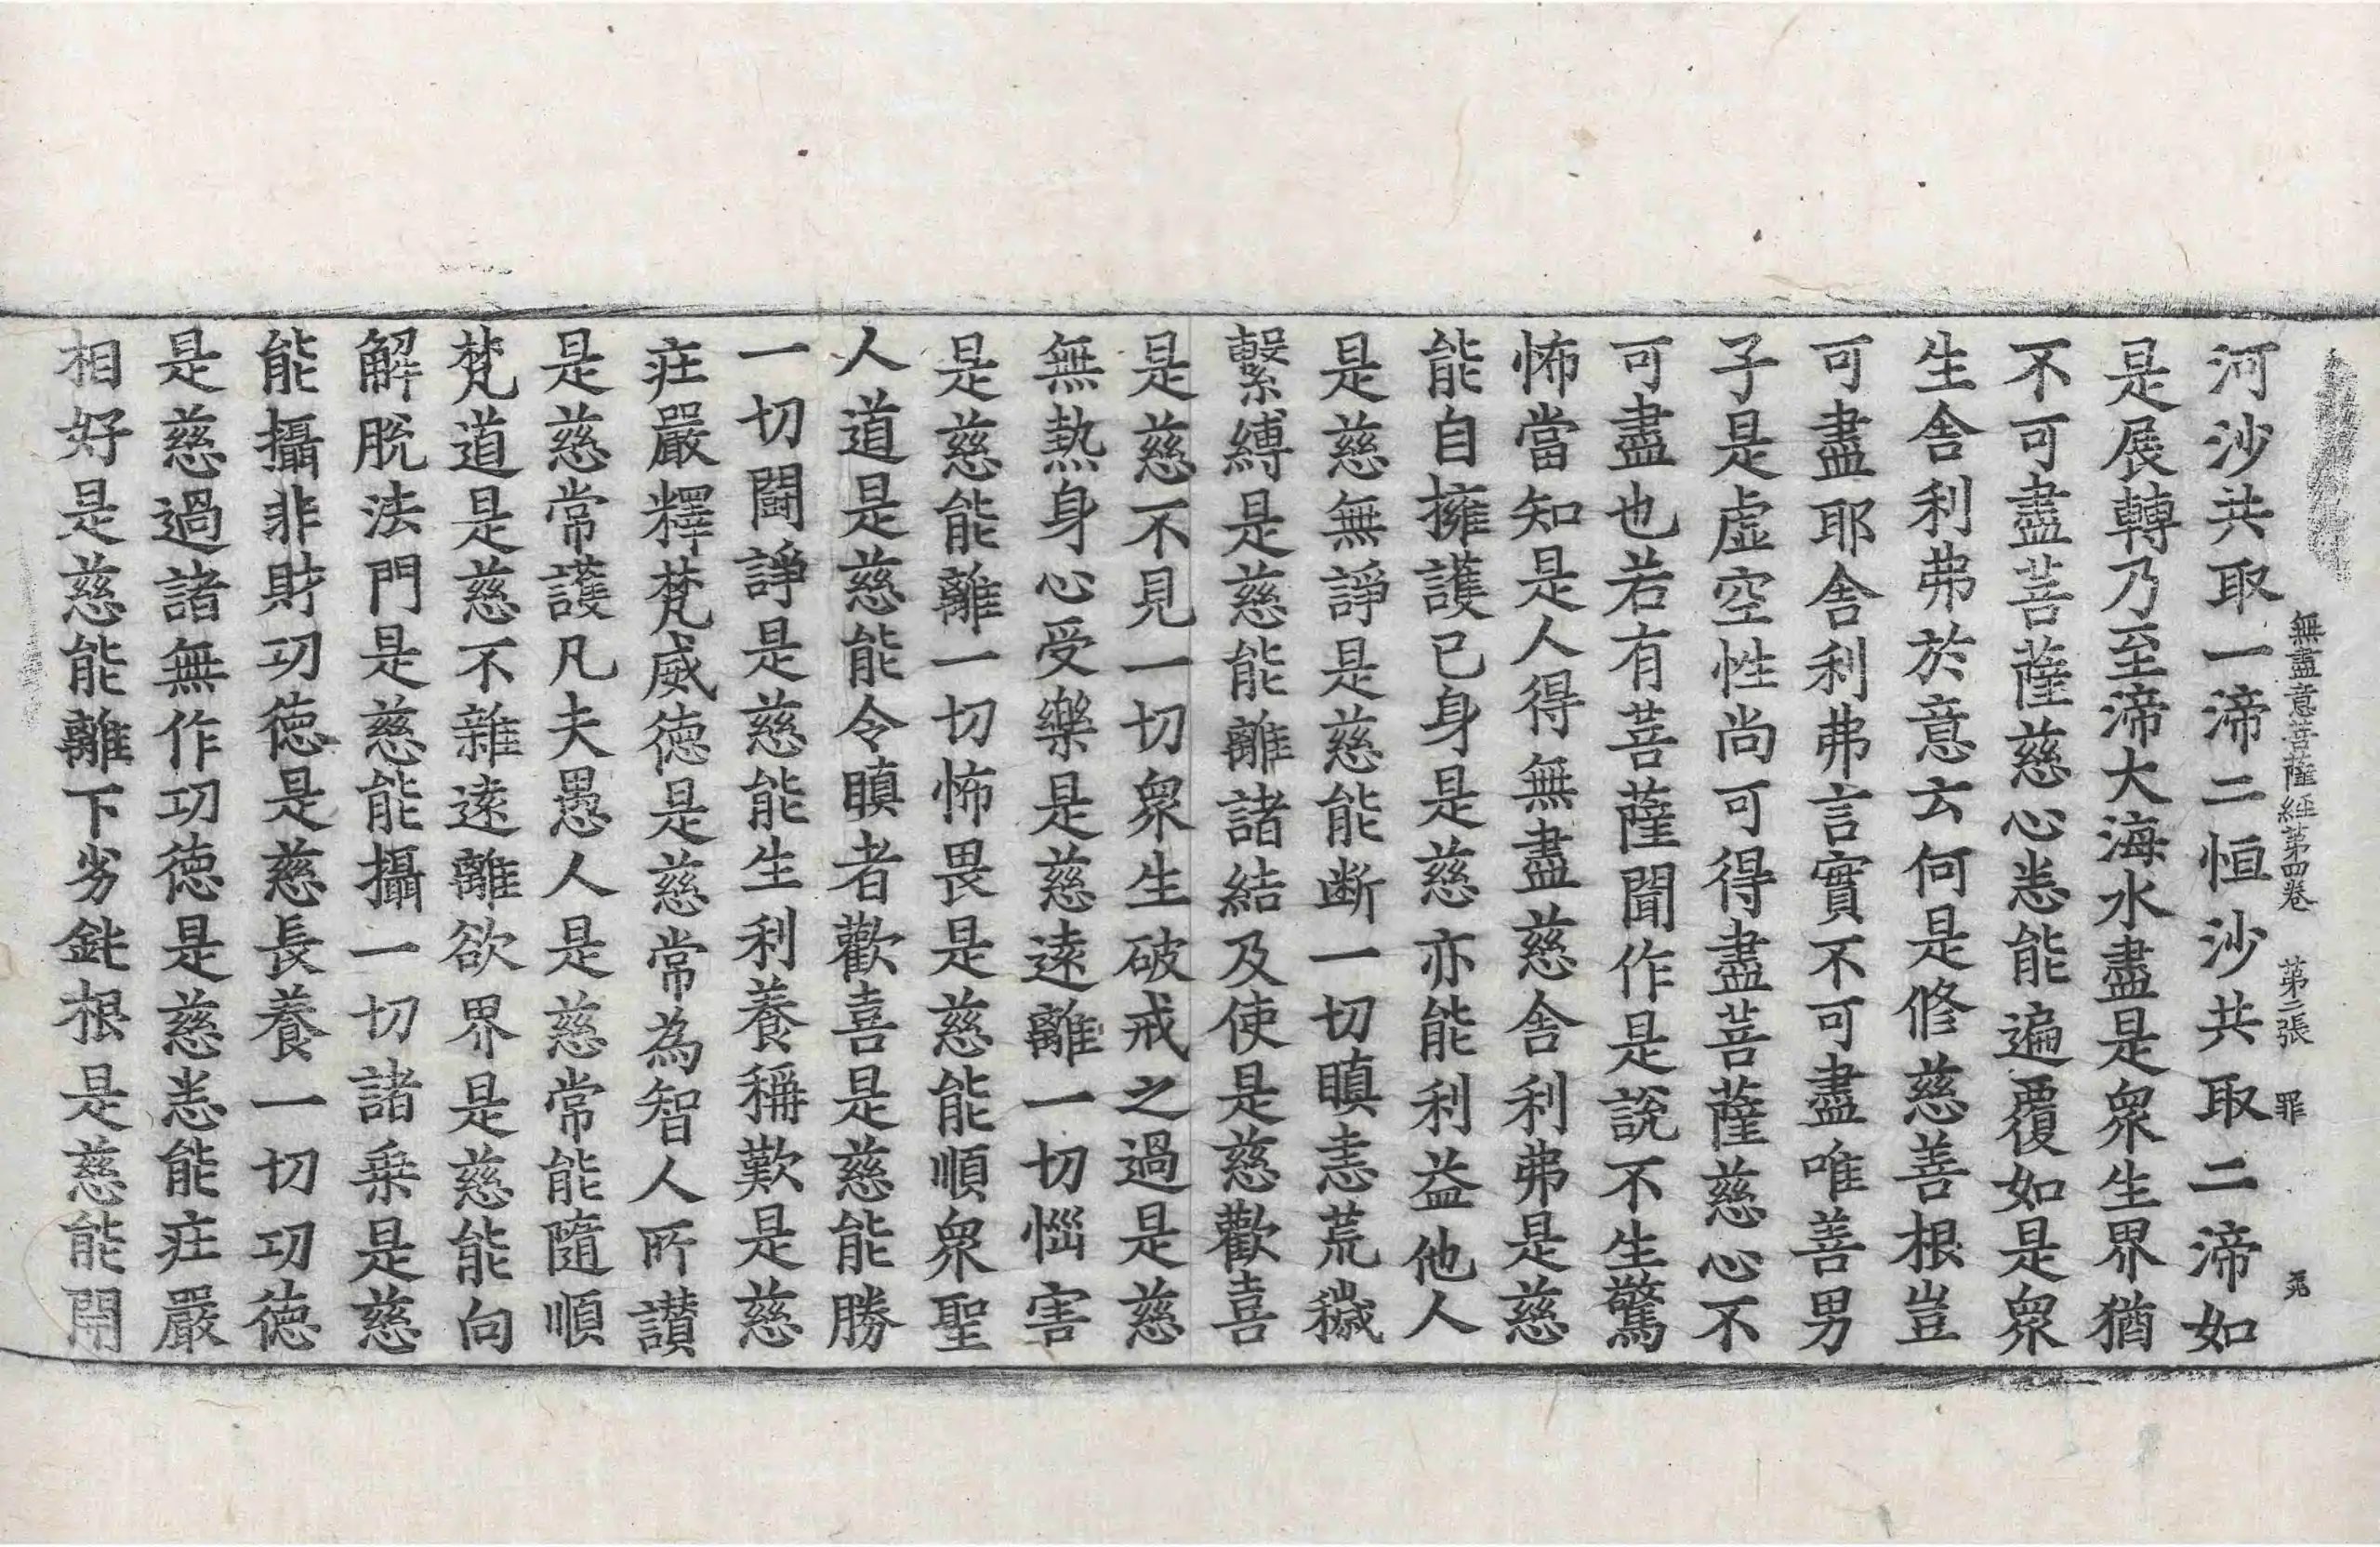 無盡意菩薩經第四卷 第二張 罪
河沙共取一渧二恒沙共取二渧如
是展轉乃至渧大海水盡是衆生界猶
不可盡菩薩慈心悉能遍覆如是衆
生舍利弗於意云何是修慈善根豈
可盡耶舍利弗言實不可盡唯善男
子是虛空性尚可得盡菩薩慈心不
可盡也若有菩薩聞作是說不生驚
怖當知是人得無盡慈舍利弗是慈
能自擁護已身是慈亦能利益他人
是慈無諍是慈能断一切瞋恚荒穢
繫縛是慈能離諸結及使是慈歡喜
是慈不見一切衆生破戒之過是慈
無熱身心受樂是慈遠離一切惱害
是慈能離一切怖畏是慈能順衆聖
人道是慈能令瞋者歡喜是慈能勝
一切鬪諍是慈能生利養稱歎是慈
庄嚴釋梵威徳是慈常為智人所讃
是慈常護凡夫愚人是慈常能隨順
梵道是慈不雜遠離欲界是慈能向
解脫法門是慈能攝一切諸乗是慈
能攝非財功徳是慈長養一切功徳
是慈過諸無作功徳是慈悉能庄嚴
相好是慈能離下劣鈍根是慈能開